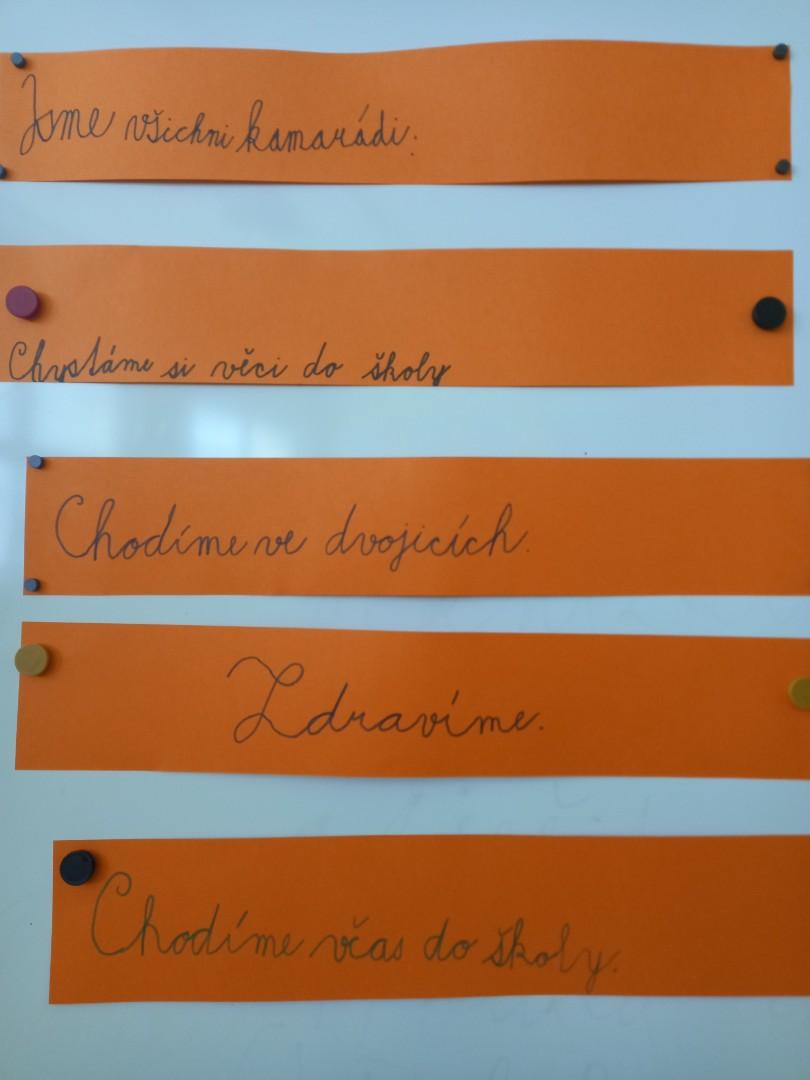 Jsme všichni kamarádi.
Chystáme si věci do školy
Chodíme ve dvojicích.
Zdravíme.
Chodíme včas do školy.